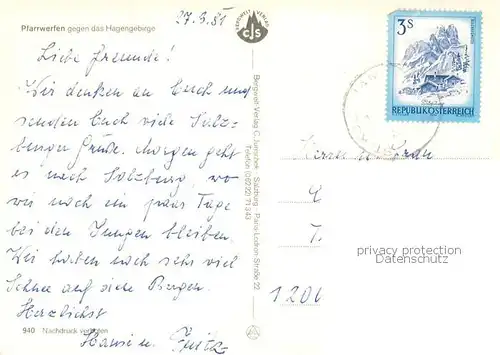 Pfarrwerfen gegen das Hagengebirge
27.3.81
Liebe Freunde!
Wir denken an Euch und
senden Euch viele Salz-
burger Grüße. Morgen geht
es nach Salzburg, wo
wir noch ein paar Tage
bei den Jungen bleiben.
Wir haben noch sehr viel
Schnee auf den Bergen.
Herzlichst
Hansi u. Fritz
940 Nachdruck verboten
BERGWELT VERLAG
CJS
Bergwelt-Verlag C. Jurischek · Salzburg · Paris-Lodron-Straße 22
Telefon (0 62 22) 71 3 43
3S
REPUBLIK ÖSTERREICH
Herrn u. Frau
privacy protection
Datenschutz
120